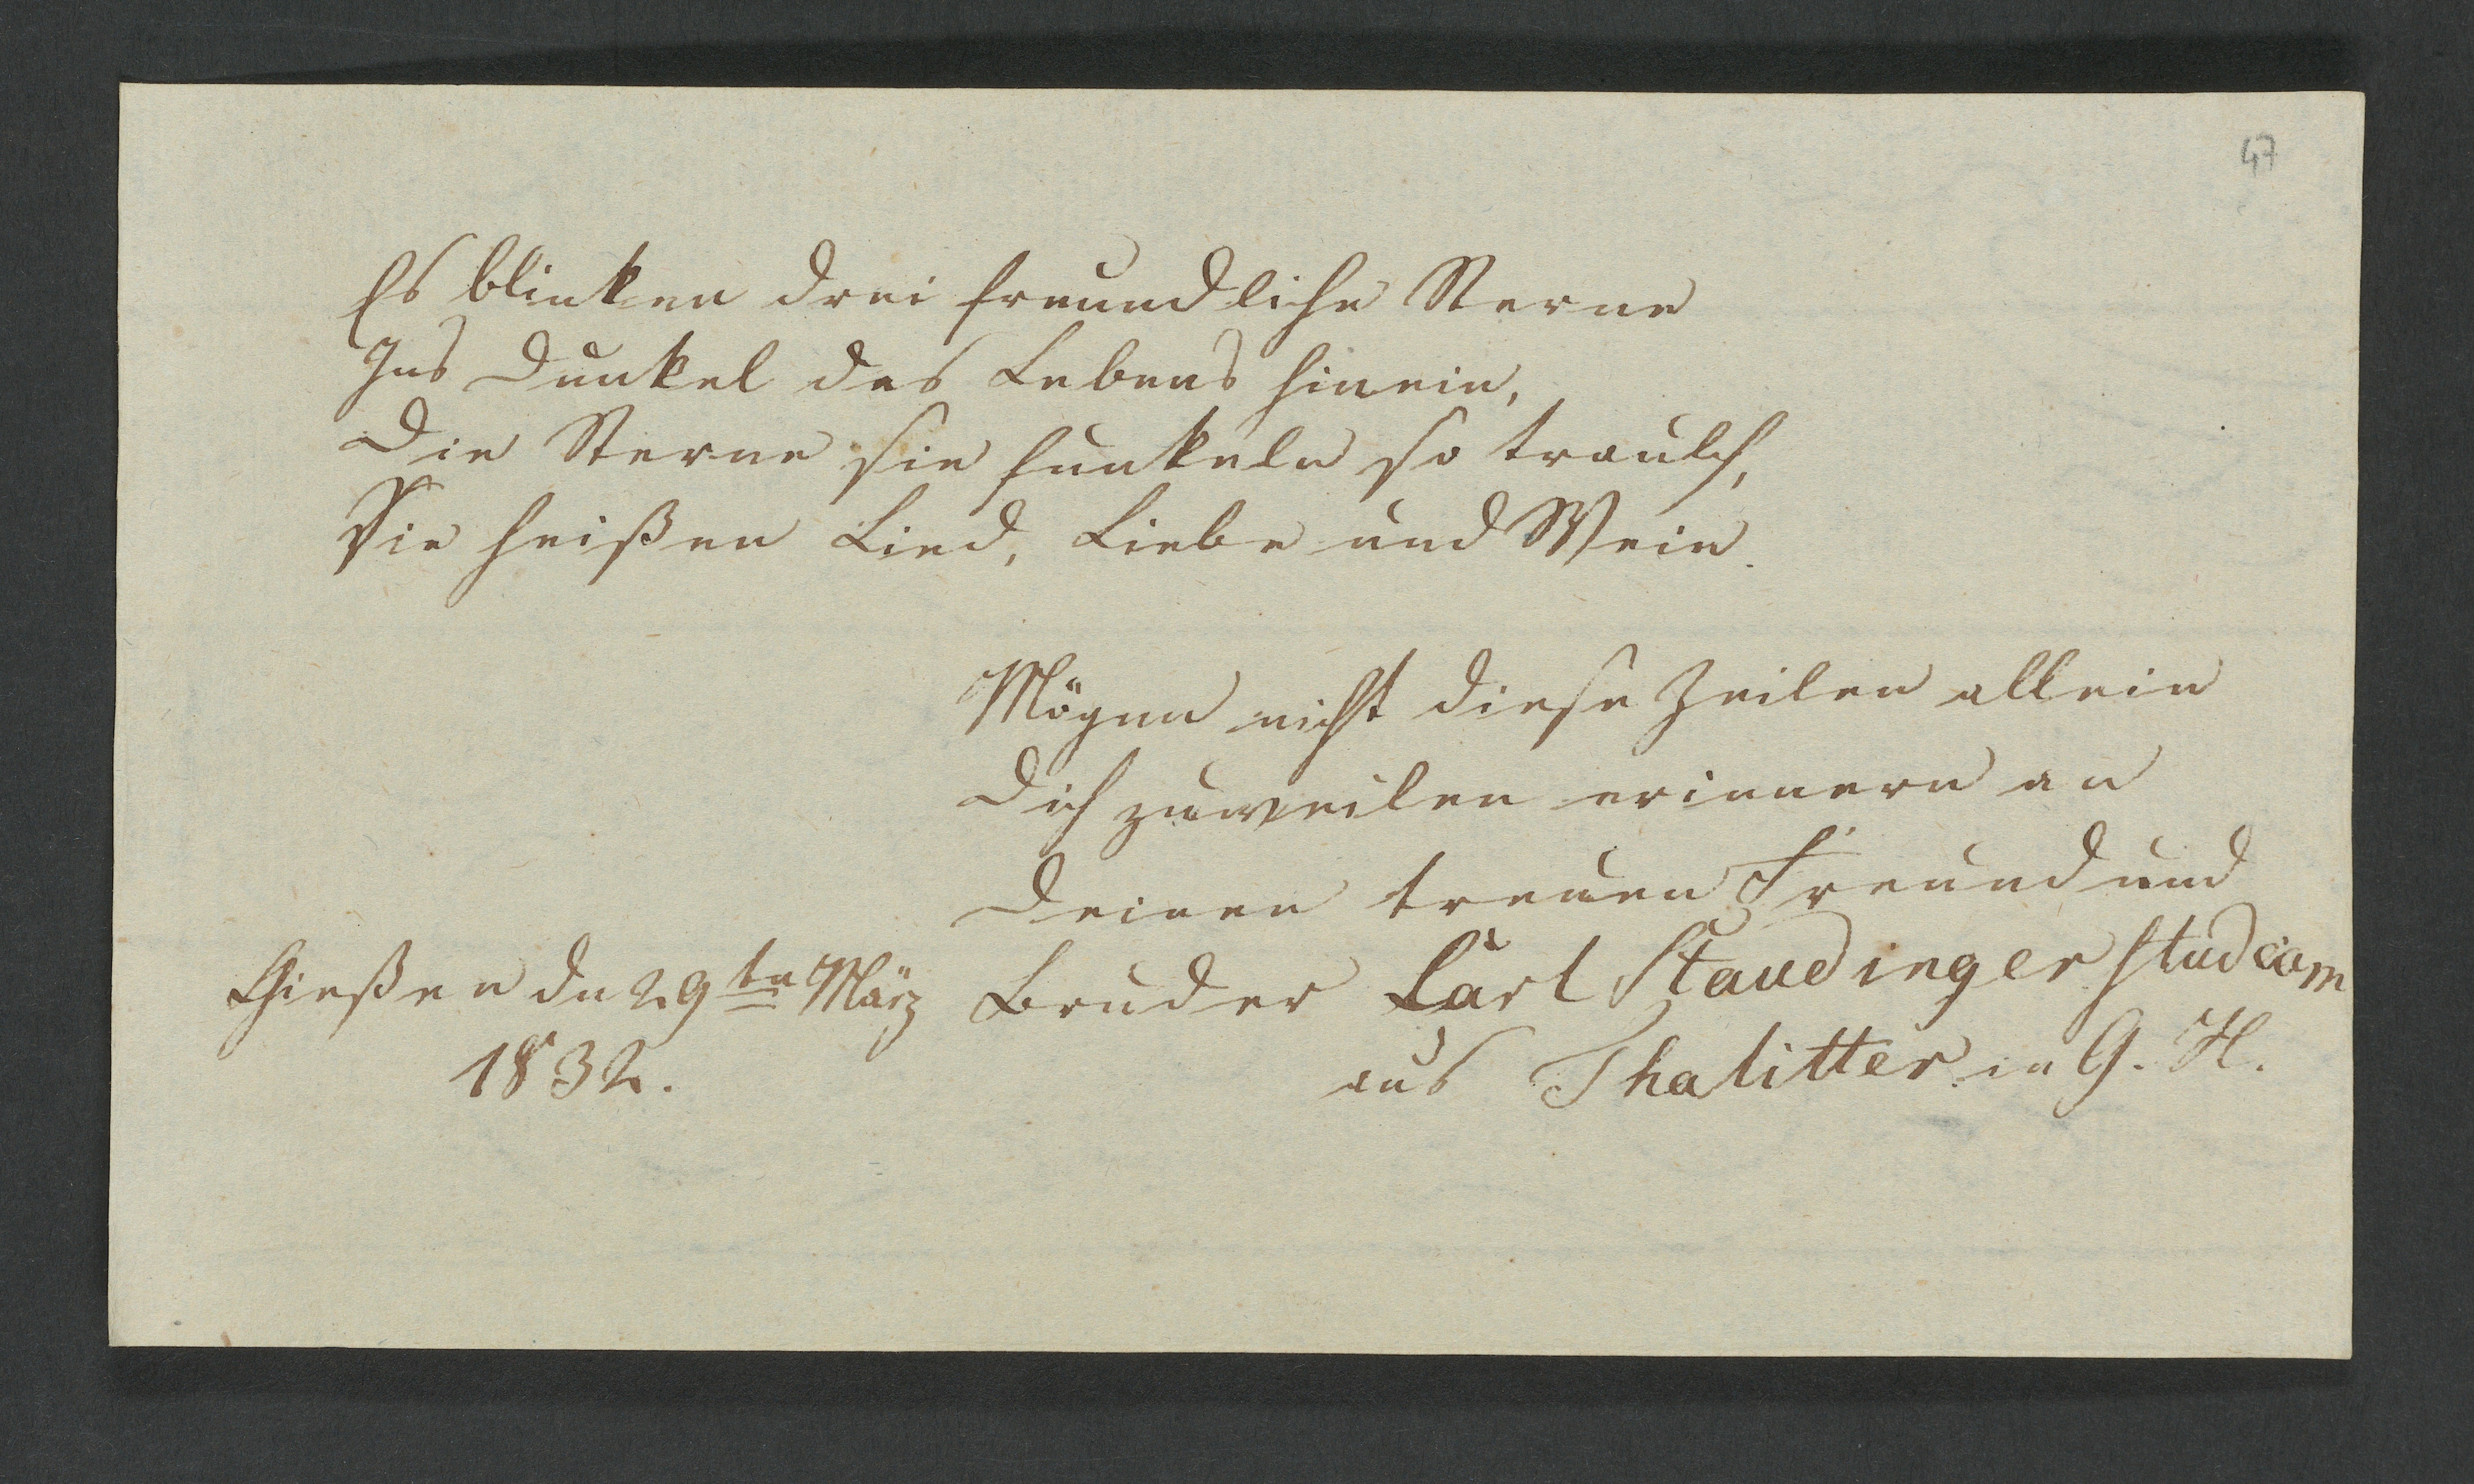 47
Es blinken drei freundliche Sterne
Ins Dunkel des Lebens hinein,
Die Sterne sie funkeln so traulich,
Sie heißen Lied, Liebe und Wein.
Mögen nicht diese Zeilen allein
Dich zuweilen erinnern an
Deinen treuen Freund und
Bruder Carl Staudinger stud cam
aus Thalitter in G. H.
Gießen dn 29ten März
1832.